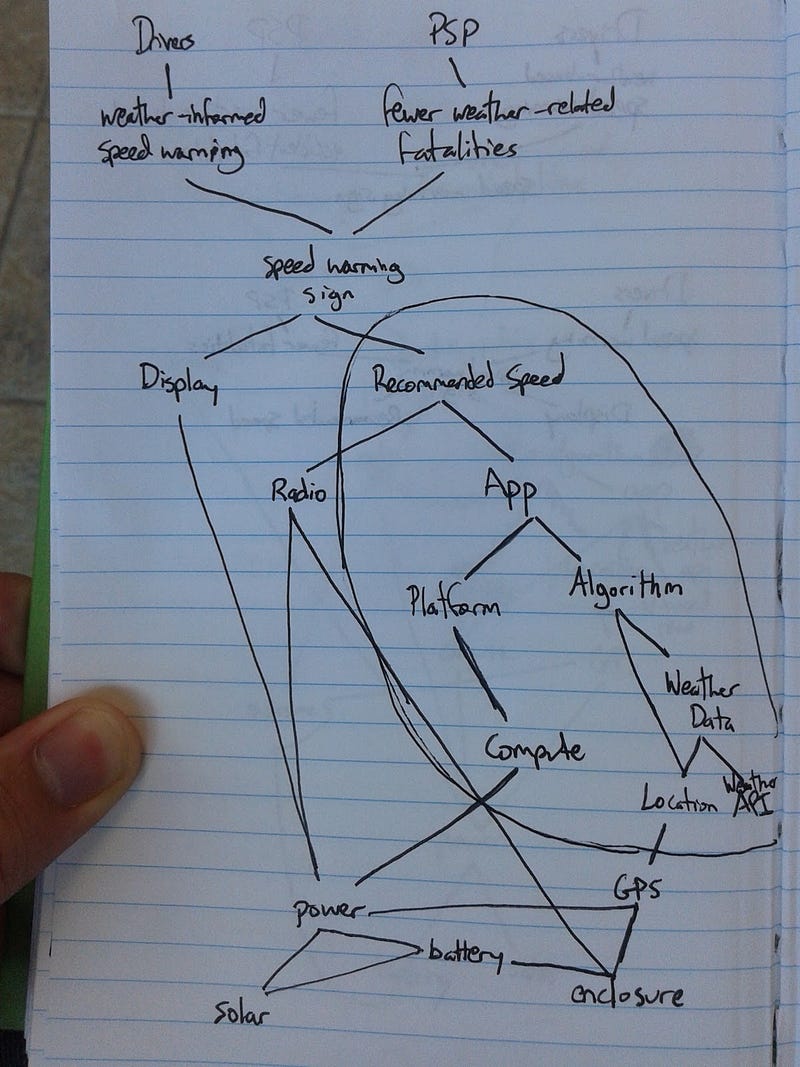 Drivers
PSP
weather-informed
speed warning
fewer weather-related
fatalities
speed warning
sign
Display
Recommended Speed
Radio
App
Platform
Algorithm
Weather
Data
Compute
Location
Weather
API
GPS
power
battery
enclosure
solar